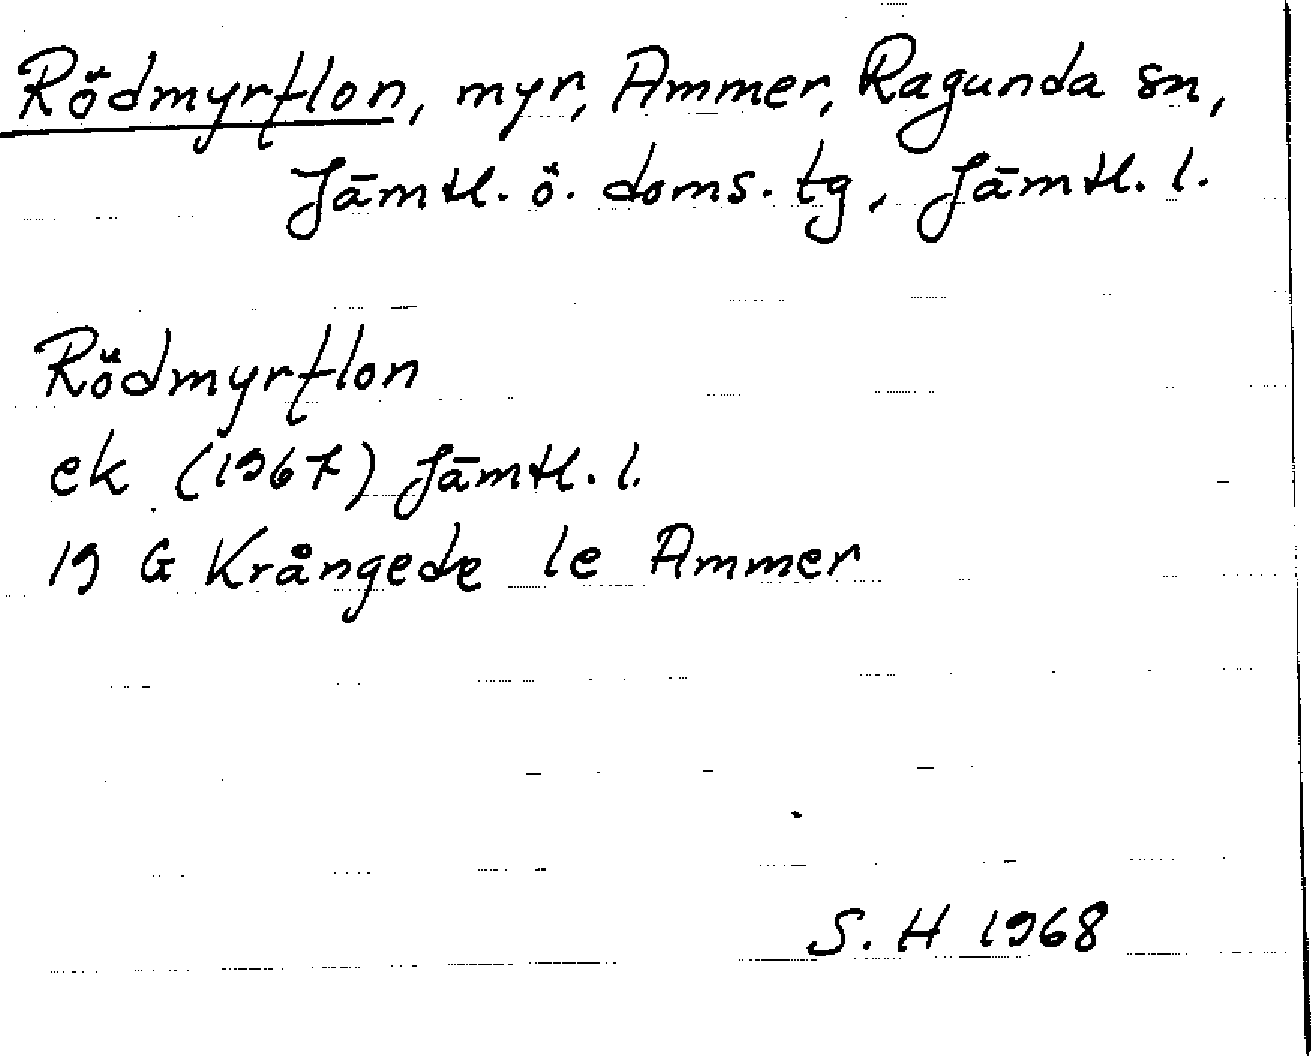 Rödmyrflon, myr, Ammer, Ragunda sn,
Jämtl. ö. doms. tg, Jämtl. l.
Rödmyrflon
ek (1967) Jämtl. l.
19 G Krångede le Ammer
S. H 1968